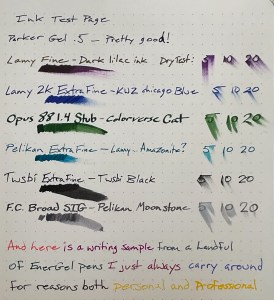 Ink Test Page
Parker Gel .5 – Pretty good!
Lamy Fine – Dark lilac ink Dry Test: 5 10 20
Lamy 2K Extra Fine – KUZ chicago Blue 5 10 20
Opus 88 1.4 Stub – Colorverse Cat 5 10 20
Pelikan Extra Fine – Lamy.. Amazonite? 5 10 20
Twsbi Extra Fine – Twsbi Black 5 10 20
F.C. Broad SIG – Pelikan Moonstone 5 10 20
And here is a writing sample from a handful
of EnerGel pens I just always carry around
for reasons both personal and Professional